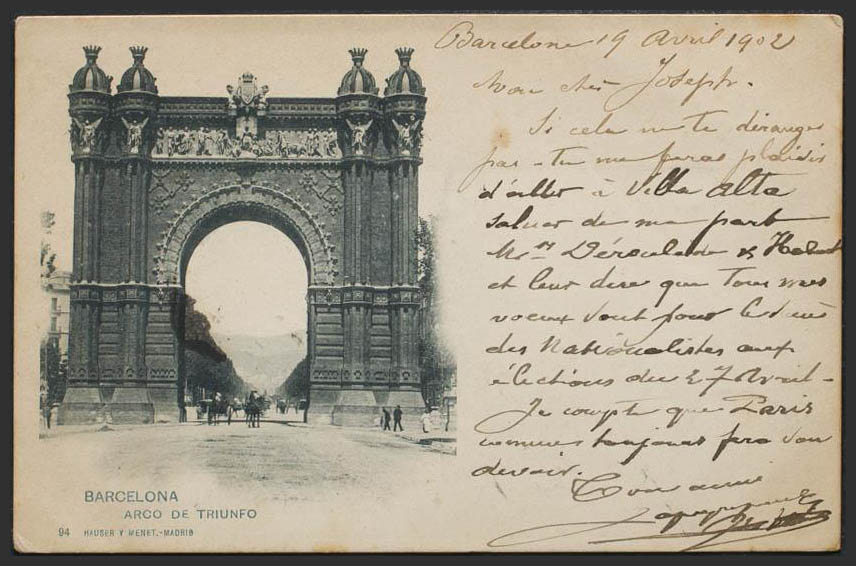 Barcelone 19 Avril 1902
Mon cher Joseph.
Si cela ne te déranges
pas - tu me feras plaisir
d'aller à Villa Alta
saluer de ma part
Mrs Déroulède &
et leur dire que tous mes
voeux vont pour le succès
des Nationalistes aux
élections du 27 Avril -
Je compte que Paris
comme toujours fera son
devoir.
Ton ami
BARCELONA
ARCO DE TRIUNFO
94 HAUSER Y MENET.-MADRID